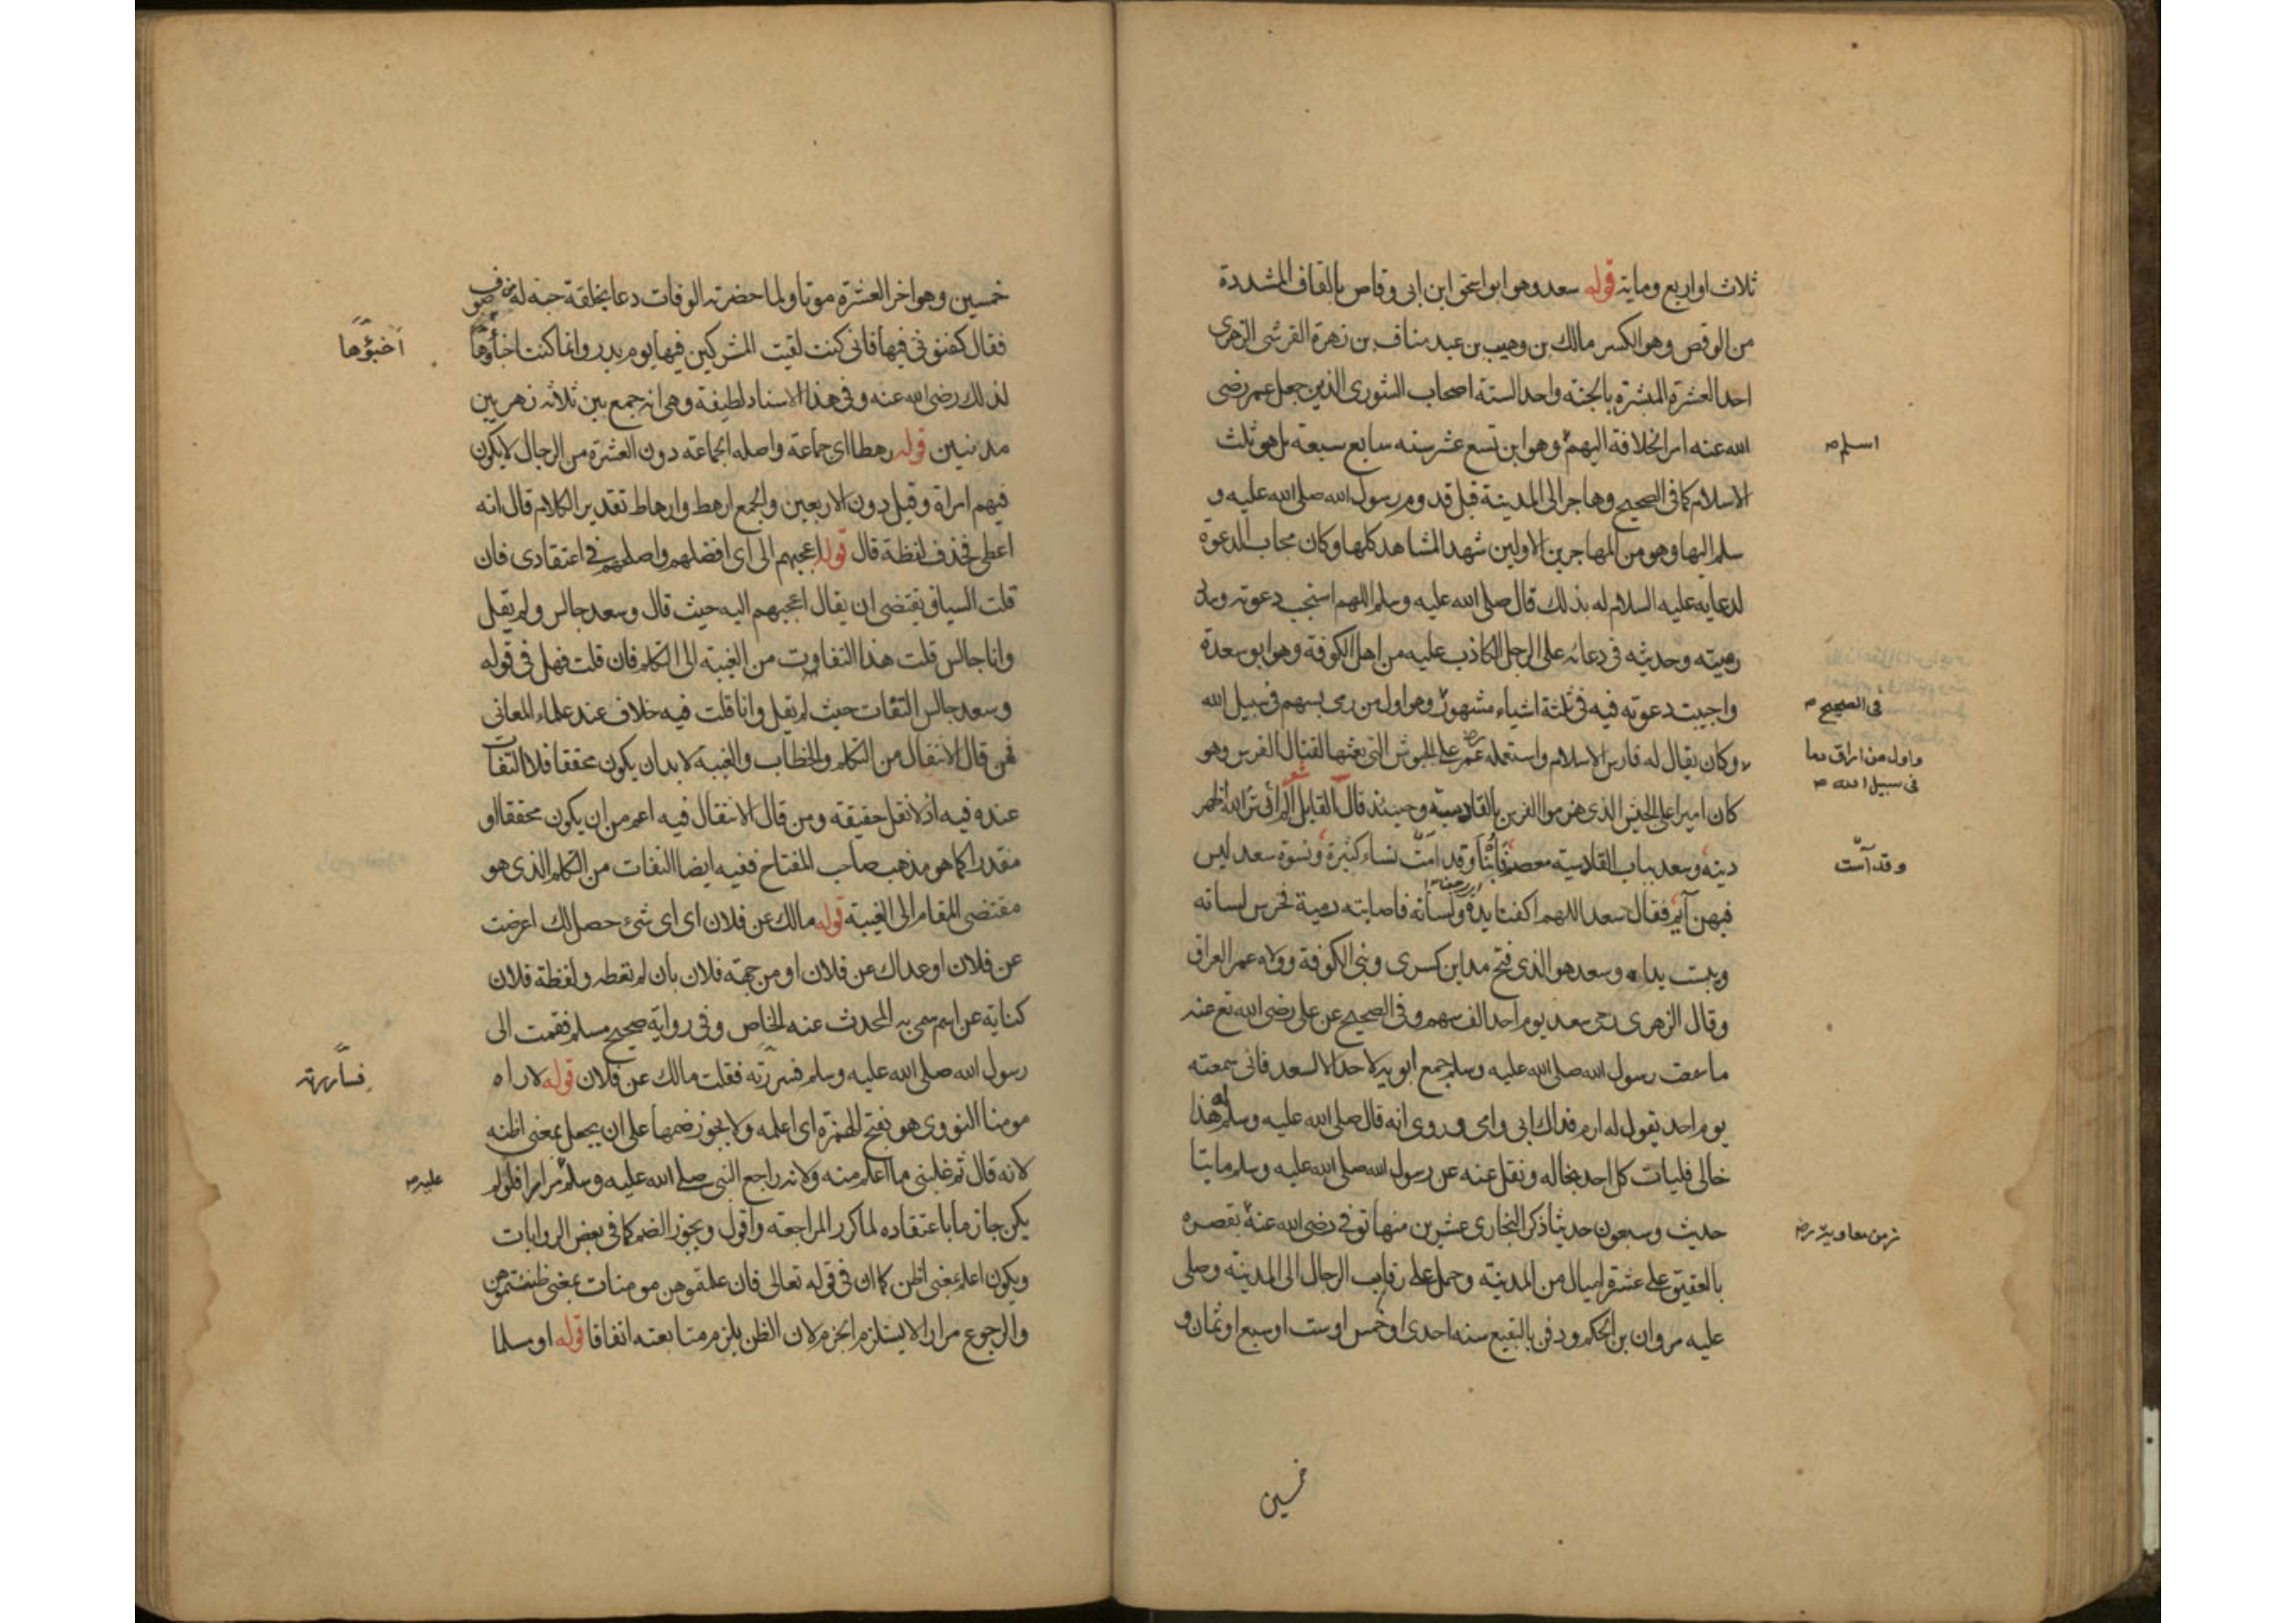 ثلاث او اربع وماية قوله سعد وهو ابو اسحق ابن ابى وقاص بالقاف المشددة
من الوقص وهو الكسر مالك بن وهيب بن عبد مناف بن زهرة القرشى الزهرى
احد العشرة المبشرة بالجنة واحد الستة اصحاب الشورى الذين جعل عمر رضى
الله عنه امر الخلافة اليهم وهو ابن تسع عشر سنه سابع سبعة بل هو ثلث
اسلم
الاسلام كما فى الصحيح وهاجر الى المدينة قبل قدوم رسول الله صلى الله عليه و
سلم اليها وهو من المهاجرين الاولين شهد المشاهد كلها وكان مجاب الدعوة
لدعايه عليه السلام له بذلك قال صلى الله عليه وسلم اللهم استجب دعوته وسدد
رميته وحديثه فى دعائه على الرجل الكاذب عليه من اهل الكوفة وهو ابو سعدة
واجيبت دعوته فيه فى ثلثة اشياء مشهور وهو اول من رمى بسهم فى سبيل الله
فى الصحيح
واول من اراق دما
فى سبيل الله
وكان يقال له فارس الاسلام واستعمله عمر على الجيوش التى بعثها لقتال الفرس وهو
كان اميرا على الجيش الذى هزموا الفرس بالقادسية وحينئذ قال القايل الم تر ان الله اظهر
دينه وسعد بباب القادسية معصم فابنا وقد امت نساء كثيرة ونسوة سعد ليس
وقد آمت
فيهن ايم فقال سعد اللهم اكفنا يده ولسانه فاصابته رمية فخرس لسانه
ويبست يداه وسعد هو الذى فتح مداين كسرى وبنى الكوفة وولاه عمر العراق
وقال الزهرى رمى سعد يوم احد الف سهم وفى الصحيح عن على رضى الله تع عنه
ما سمعت رسول الله صلى الله عليه وسلم جمع ابويه لاحد الا لسعد فانى سمعته
يوم احد يقول له ارم فداك ابى وامى وروى انه قال صلى الله عليه وسلم له هذا
خالى فليات كل احد بخاله ونقل عنه عن رسول الله صلى الله عليه وسلم مايتا
حديث وسبعون حديثا ذكر البخارى عشرين منها توفى رضى الله عنه بقصره
زمن معاوية رض
بالعقيق على عشرة اميال من المدينة وحمل على رقاب الرجال الى المدينة وصلى
عليه مروان بن الحكم ودفن بالبقيع سنه احدى او خمس او ست او سبع او ثمان و
خمسين
خمسين وهو اخر العشرة موتا ولما حضرته الوفات دعا بخلقة جبة له من صوف
فقال كفنونى فيها فانى كنت لقيت المشركين فيها يوم بدر وانما كنت اخبؤها
اخبؤها
لذلك رضى الله عنه وفى هذا الاسناد لطيفة وهى انه جمع بين ثلاثه زهريين
مدنيين قوله رهطا اى جماعة واصله الجماعة دون العشرة من الرجال لا يكون
فيهم امراة وقيل دون الاربعين والجمع ارهط وارهاط تقدير الكلام قال انه
اعطى فحذف لفظة قال قوله اعجبهم الى اى افضلهم واصلحهم فى اعتقادى فان
قلت السياق يقتضى ان يقال اعجبهم اليه حيث قال وسعد جالس ولم يقل
وانا جالس قلت هذا التفاوت من الغيبة الى التكلم فان قلت فهل فى قوله
وسعد جالس التفات حيث لم يقل وانا قلت فيه خلاف عند علماء المعانى
فمن قال الانتقال من التكلم والخطاب والغيبة لا بد ان يكون محققا فلا التفات
عنده فيه اذ لا نقل حقيقة ومن قال الانتقال فيه اعم من ان يكون محققا او
مقدرا كما هو مذهب صاحب المفتاح ففيه ايضا التفات من التكلم الذى هو
مقتضى المقام الى الغيبة قوله مالك عن فلان اى اى شئ حصل لك اعرضت
عن فلان او عداك عن فلان او من جهة فلان بان لم تعطه ولفظة فلان
كناية عن اسم سمى به المحدث عنه الخاص وفى رواية صحيح مسلم فقمت الى
رسول الله صلى الله عليه وسلم فسررته فقلت مالك عن فلان قوله لاراه
فساررته
مومنا النووى هو بفتح الهمزة اى اعلمه ولا يجوز ضمها على ان يجعل بمعنى اظنه
لانه قال ثم غلبنى ما اعلم منه ولانه راجع النبى صلى الله عليه وسلم مرارا فلو لم
عليه
يكن جازما باعتقاده لما كرر المراجعة واقول ويجوز الضم كما فى بعض الروايات
ويكون اعلم بمعنى اظن كما ان فى قوله تعالى فان علمتموهن مومنات بمعنى ظننتموهن
والرجوع مرارا لا يستلزم الجزم لان الظن يلزم متابعته اتفاقا قوله او مسلما